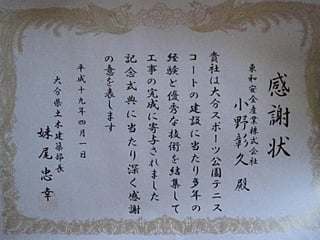 感謝状
東和安全産業株式会社
小野彰久 殿
貴社は大分スポーツ公園テニス
コートの建設に当たり多年の
経験と優秀な技術を結集して
工事の完成に寄与されました
記念式典に当たり深く感謝
の意を表します
平成十九年四月一日
大分県土木建築部長
妹尾忠幸